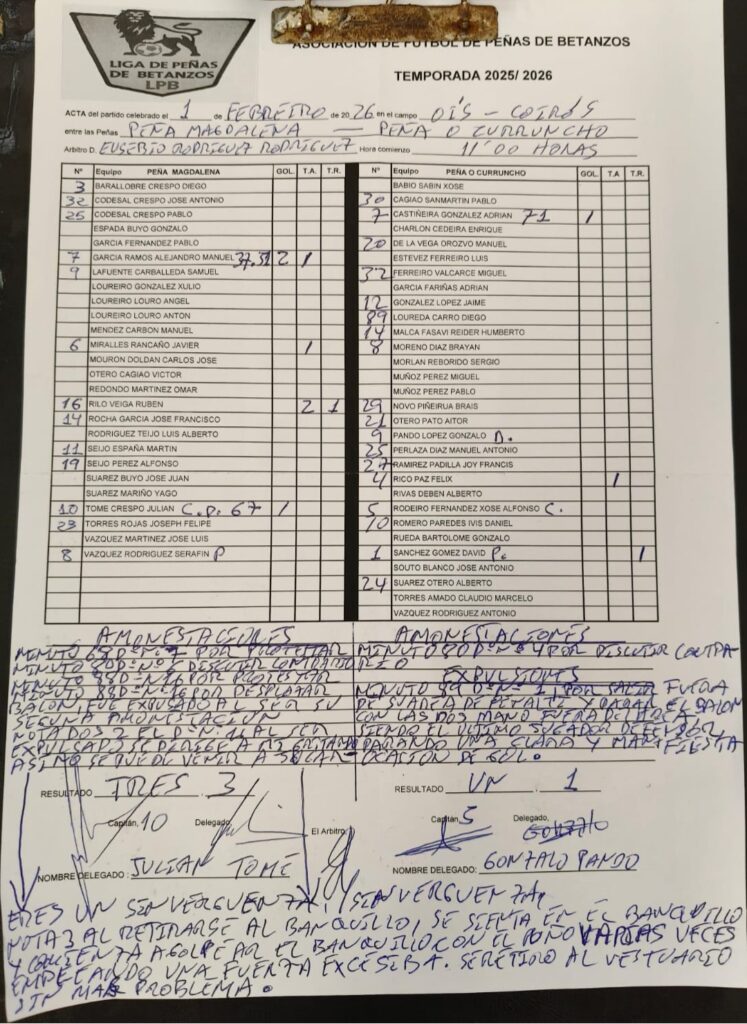 LIGA DE PEÑAS
DE BETANZOS
LPB
ASOCIACION DE FUTBOL DE PEÑAS DE BETANZOS
TEMPORADA 2025/ 2026
ACTA del partido celebrado el 1 de FEBREIRO de 2026 en el campo OÍS - COIRÓS
entre las Peñas PEÑA MAGDALENA — PEÑA O CURRUNCHO
Arbitro D. EUSEBIO RODRIGUEZ RODRIGUEZ Hora comienzo 11'00 HORAS
Nº Equipo PEÑA MAGDALENA GOL. T.A. T.R.
3 BARALLOBRE CRESPO DIEGO
32 CODESAL CRESPO JOSE ANTONIO
25 CODESAL CRESPO PABLO
ESPADA BUYO GONZALO
GARCIA FERNANDEZ PABLO
7 GARCIA RAMOS ALEJANDRO MANUEL 37.51 2 1
9 LAFUENTE CARBALLEDA SAMUEL
LOUREIRO GONZALEZ XULIO
LOUREIRO LOURO ANGEL
LOUREIRO LOURO ANTON
MENDEZ CARBON MANUEL
6 MIRALLES RANCAÑO JAVIER 1
MOURON DOLDAN CARLOS JOSE
OTERO CAGIAO VICTOR
REDONDO MARTINEZ OMAR
16 RILO VEIGA RUBEN 2 1
14 ROCHA GARCIA JOSE FRANCISCO
RODRIGUEZ TEIJO LUIS ALBERTO
11 SEIJO ESPAÑA MARTIN
19 SEIJO PEREZ ALFONSO
SUAREZ BUYO JOSE JUAN
SUAREZ MARIÑO YAGO
10 TOME CRESPO JULIAN C.P. 67 1
23 TORRES ROJAS JOSEPH FELIPE
VAZQUEZ MARTINEZ JOSE LUIS
8 VAZQUEZ RODRIGUEZ SERAFIN P
Nº Equipo PEÑA O CURRUNCHO GOL. T.A T.R.
BABIO SABIN XOSE
30 CAGIAO SANMARTIN PABLO
7 CASTIÑEIRA GONZALEZ ADRIAN 71 1
CHARLON CEDEIRA ENRIQUE
20 DE LA VEGA OROZVO MANUEL
ESTEVEZ FERREIRO LUIS
32 FERREIRO VALCARCE MIGUEL
GARCIA FARIÑAS ADRIAN
12 GONZALEZ LOPEZ JAIME
89 LOUREDA CARRO DIEGO
14 MALCA FASAVI REIDER HUMBERTO
8 MORENO DIAZ BRAYAN
MORLAN REBORIDO SERGIO
MUÑOZ PEREZ MIGUEL
MUÑOZ PEREZ PABLO
29 NOVO PIÑEIRUA BRAIS
21 OTERO PATO AITOR
9 PANDO LOPEZ GONZALO D.
25 PERLAZA DIAZ MANUEL ANTONIO
27 RAMIREZ PADILLA JOY FRANCIS
4 RICO PAZ FELIX 1
RIVAS DEBEN ALBERTO
5 RODEIRO FERNANDEZ XOSE ALFONSO C.
10 ROMERO PAREDES IVIS DANIEL
RUEDA BARTOLOME GONZALO
1 SANCHEZ GOMEZ DAVID P. 1
SOUTO BLANCO JOSE ANTONIO
24 SUAREZ OTERO ALBERTO
TORRES AMADO CLAUDIO MARCELO
VAZQUEZ RODRIGUEZ ANTONIO
AMONESTACIONES
MINUTO D-Nº 7 POR PROTESTAR
MINUTO 80 D-Nº 6 DISCUTIR CONTRARIO
MINUTO 88 D-Nº 16 POR PROTESTAR
MINUTO 88 D-Nº 16 POR DESPLAZAR
BALON, FUE EXPUSADO AL SER SU
SEGUNA AMONESTACION
NOTA DOS 2 EL D-Nº 16 AL SER
EXPULSADO SE DIRIGE A MI GRITANDO
ASI NO SE PUEDE VENIR A
AMONESTACIONES
MINUTO 80 D-Nº 4 POR DISCUTIR CONTRA-
EXPULSIONES
MINUTO 89 D-Nº 1, POR SALIR FUERA
DE SU AREA DE PENALTI Y PARAR EL BALON
CON LAS DOS MANO FUERA DEL AREA
SIENDO EL ULTIMO JUGADOR DEFENSOR,
PARANDO UNA CLARA Y MANIFIESTA
OCASION DE GOL.
RESULTADO TRES 3
RESULTADO UN 1
Capitán, 10 Delegado, El Arbitro Capitán 5 Delegado, GONZALO
NOMBRE DELEGADO : JULIAN TOMÉ
NOMBRE DELEGADO: GONZALO PANDO
ERES UN SINVERGUENZA, SINVERGUENZA,
NOTA 3 AL RETIRARSE AL BANQUILLO, SE SIENTA EN EL BANQUILLO
Y COMIENZA A GOLPEAR EL BANQUILLO CON EL PUÑO VARIAS VECES
EMPLEANDO UNA FUERZA EXCESIBA. SE RETIRO AL VESTUARIO
SIN MAS PROBLEMA.